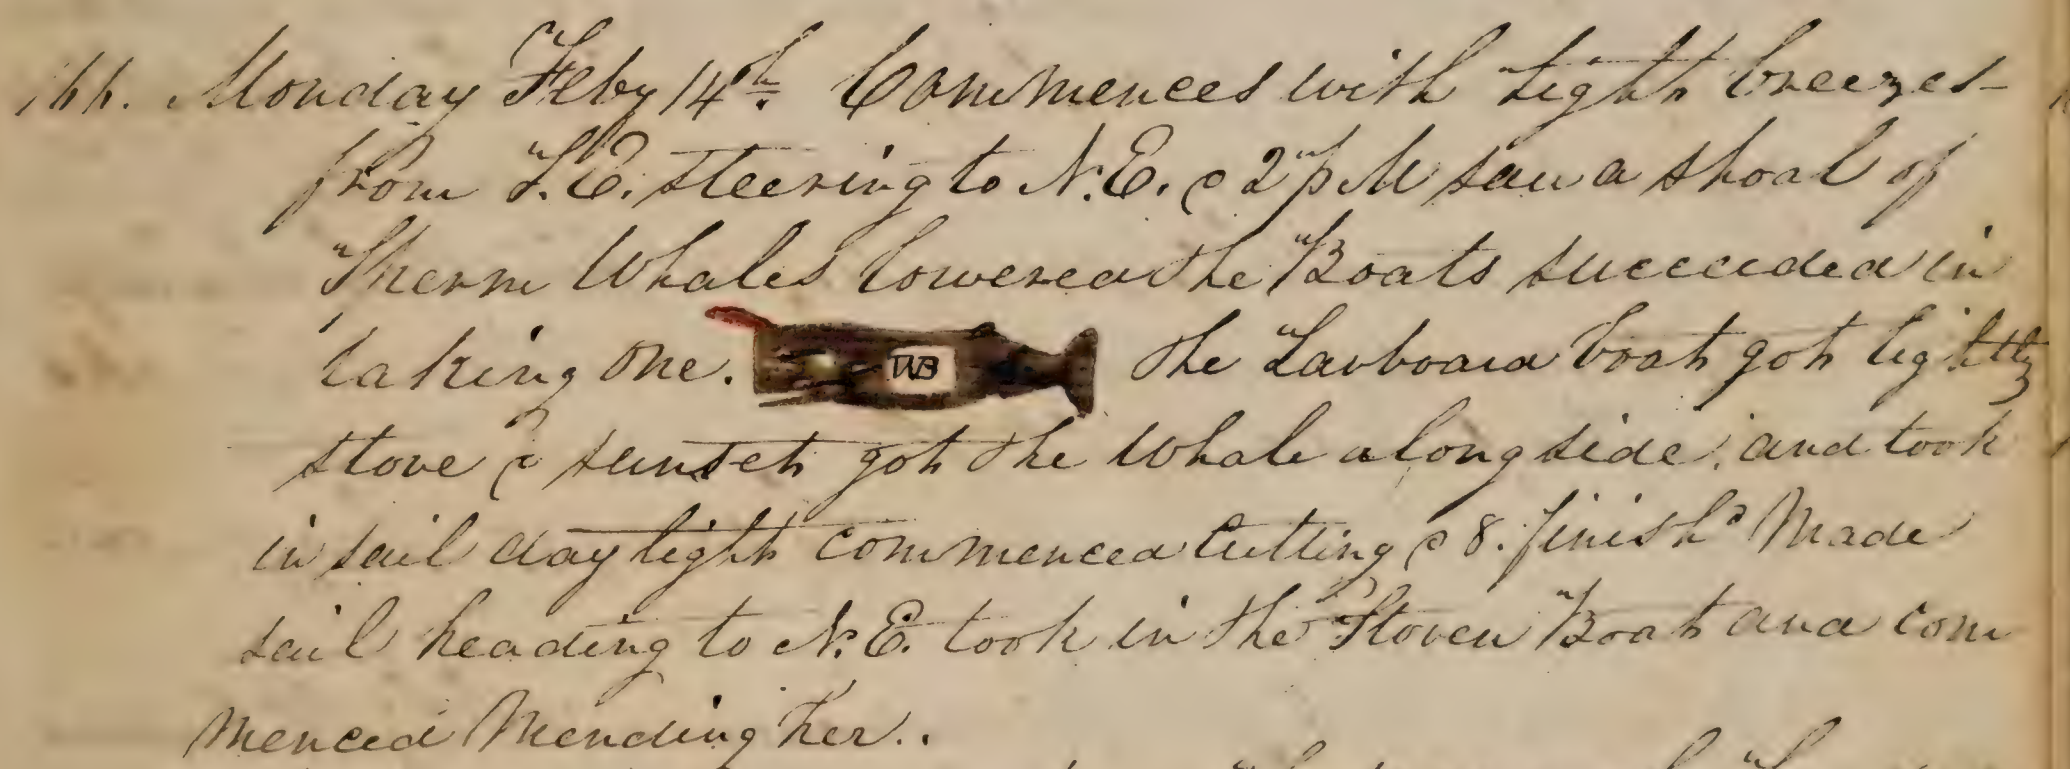 166. Monday Feby 14th. Commences with light breezes
from S.E. steering to N.E. @ 2 PM saw a shoal of
Sperm Whales lowered the Boats succeeded in
taking one. WB the Larboard boat got lightly
stove @ sunset got the Whale alongside, and took
in sail daylight commenced Cutting @ 8. finishd Made
sail heading to N.E. took in the Stoven Boat and com
menced Mending her..